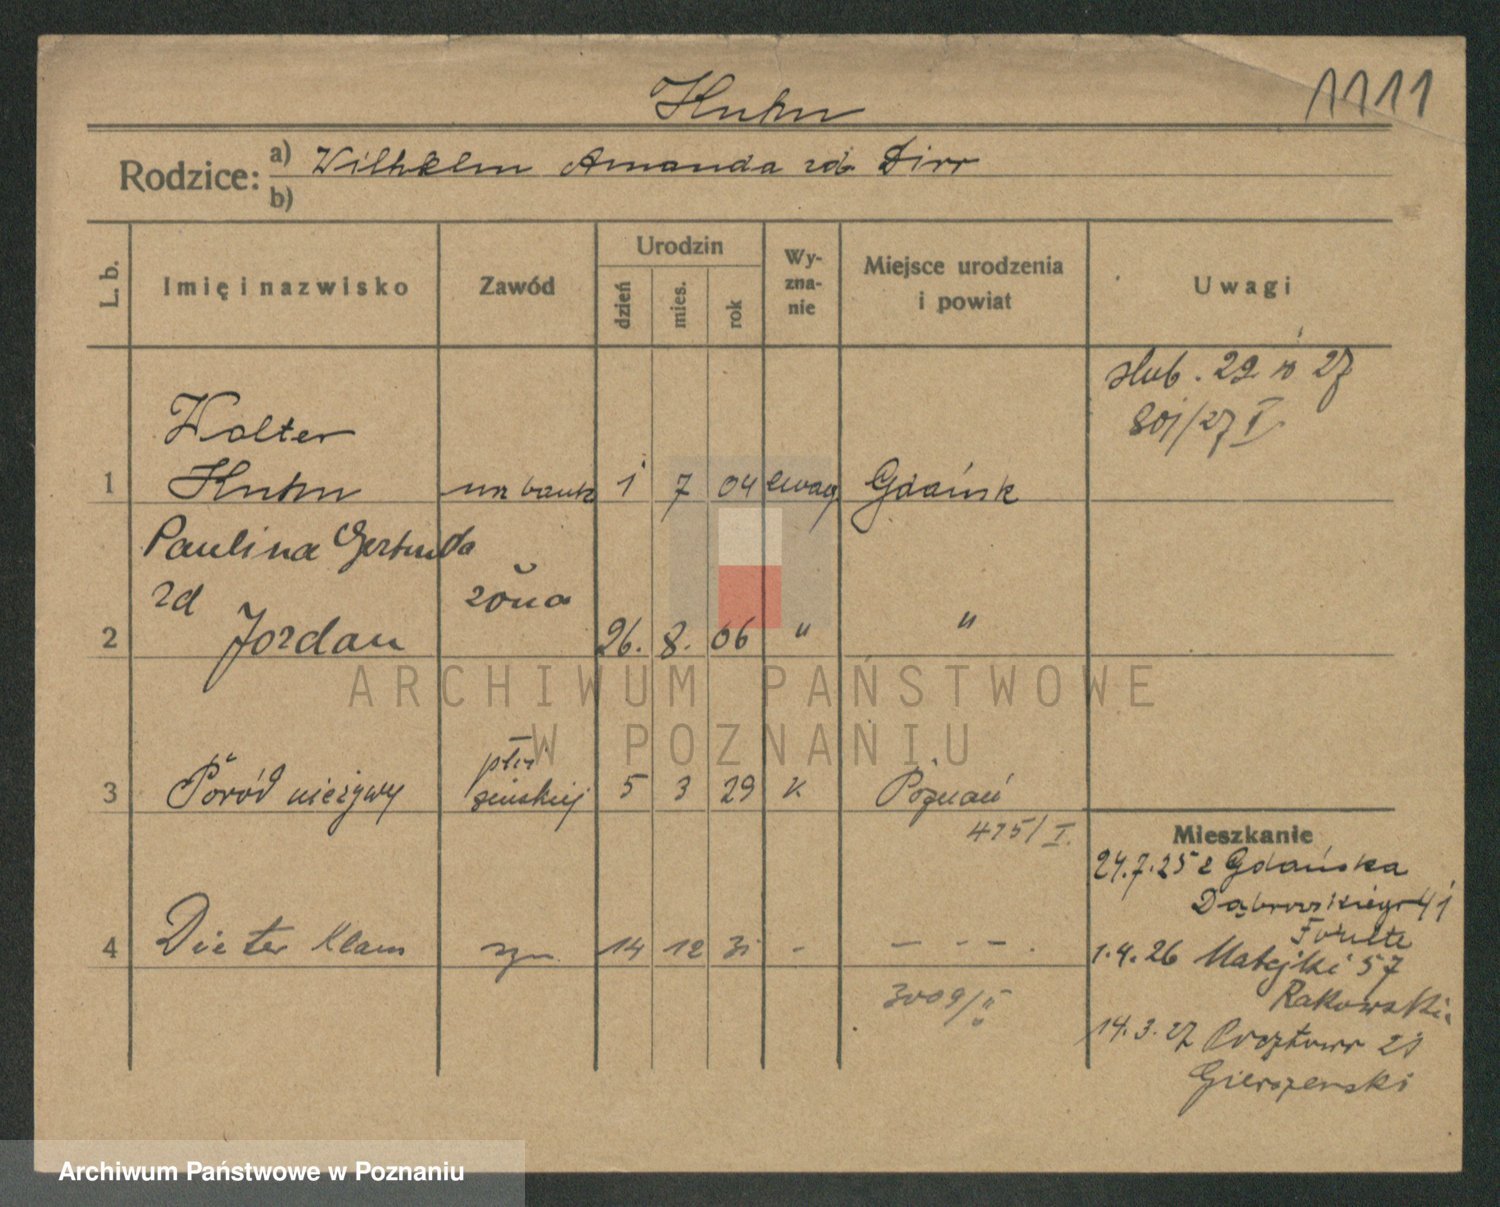 Kuhn 1111
Rodzice: a) Wilhelm Amanda zd Dirr
b)
L. b. Imię i nazwisko Zawód Urodzin dzień mies. rok Wyznanie Miejsce urodzenia i powiat Uwagi
ślub. 29 10 27
801/27 I
Walter
1 Kuhn urz bank 1 7 04 ewag Gdańsk
Paulina Gertruda
zd żona
2 Jordan 26. 8. 06 " "
płci
3 Poród nieżywy żeńskiej 5 3 29 k Poznań
475/I.
4 Dieter Klaus syn 14 12 31 - - - - .
3009/II
Mieszkanie
24.7.25 z Gdańska
Dąbrowskiego 41
1.4.26 Matejki 57
Rakowski
14.3.27 Pocztowa 21
Gierszewski
ARCHIWUM PAŃSTWOWE
W POZNANIU
Archiwum Państwowe w Poznaniu